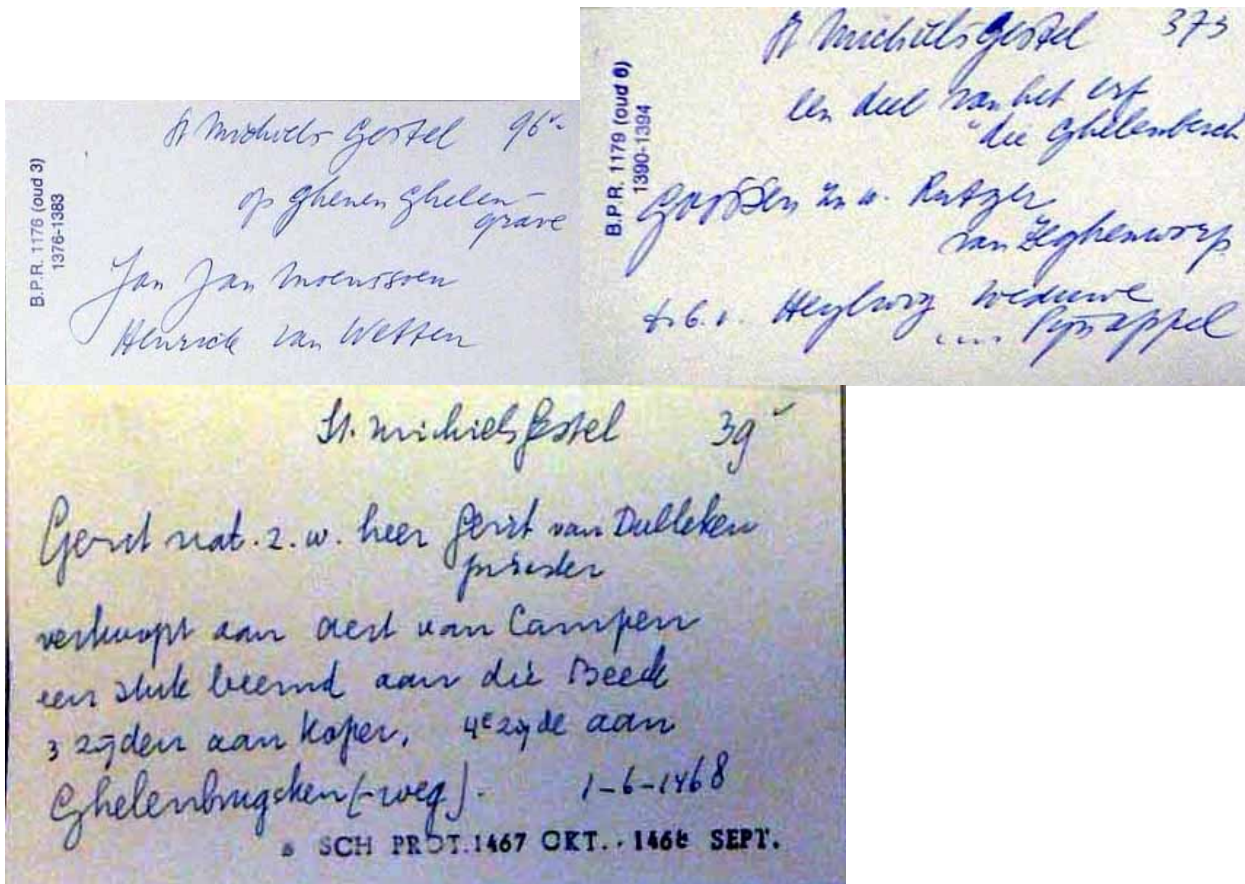 B.P.R. 1176 (oud 3)
1376-1383
St Michiels Gestel 96v
op Ghenen Ghelen-
grave
Jan Jan Moenssoen
Henrick van Wetten
B.P.R. 1179 (oud 6)
1390-1394
St Michiels Gestel 373
een deel van het erf
"die Ghelenbersch
Goossen zn v. Rutger
van Zeghenworp
t.b.v. Heylwig weduwe
.... Pijnappel
St. Michiels Gestel 39v
Gerit nat. z. w. heer Gerit van Dulleken
priester
verkoopt aan Aert van Campen
een stuk beemd aan die Beeck
3 zijden aan koper, 4e zijde aan
Ghelenbrugsken (-weg). 1-6-1468
SCH PROT. 1467 OKT. - 1468 SEPT.